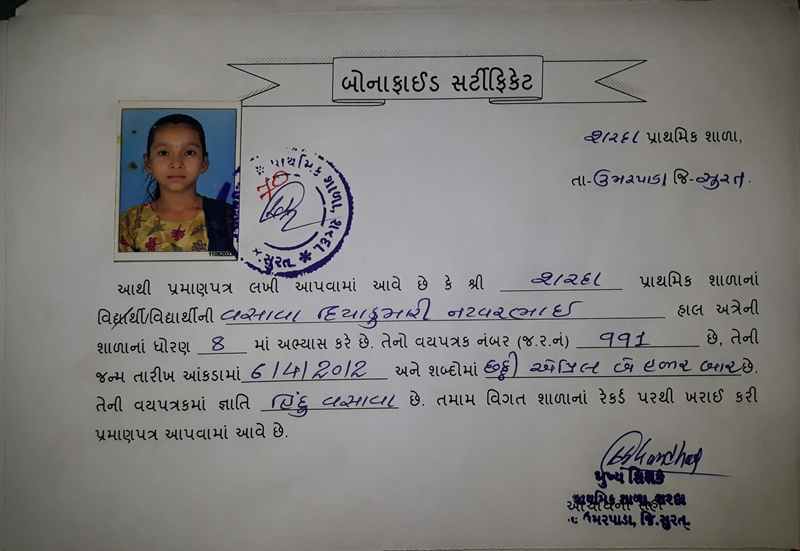 બોનાફાઈડ સર્ટીફિકેટ
શરદા પ્રાથમિક શાળા,
તા-ઉમરપાડા જિ-સુરત.
પ્રાથમિક શાળા, શરદા
70
સુરત
આથી પ્રમાણપત્ર લખી આપવામાં આવે છે કે શ્રી શરદા પ્રાથમિક શાળાનાં
વિદ્યાર્થી/વિદ્યાર્થીની વસાવા દિયાકુમારી નટવરભાઈ હાલ અત્રેની
શાળાનાં ધોરણ 8 માં અભ્યાસ કરે છે. તેનો વયપત્રક નંબર (જ.ર.નં) 991 છે, તેની
જન્મ તારીખ આંકડામાં 6/4/2012 અને શબ્દોમાં છઠ્ઠી એપ્રિલ બે હજાર બાર છે.
તેની વયપત્રકમાં જ્ઞાતિ હિંદુ વસાવા છે. તમામ વિગત શાળાનાં રેકર્ડ પરથી ખરાઈ કરી
પ્રમાણપત્ર આપવામાં આવે છે.
મુખ્ય શિક્ષક
પ્રાથમિક શાળા, શરદા
ઉમરપાડા, જિ.સુરત